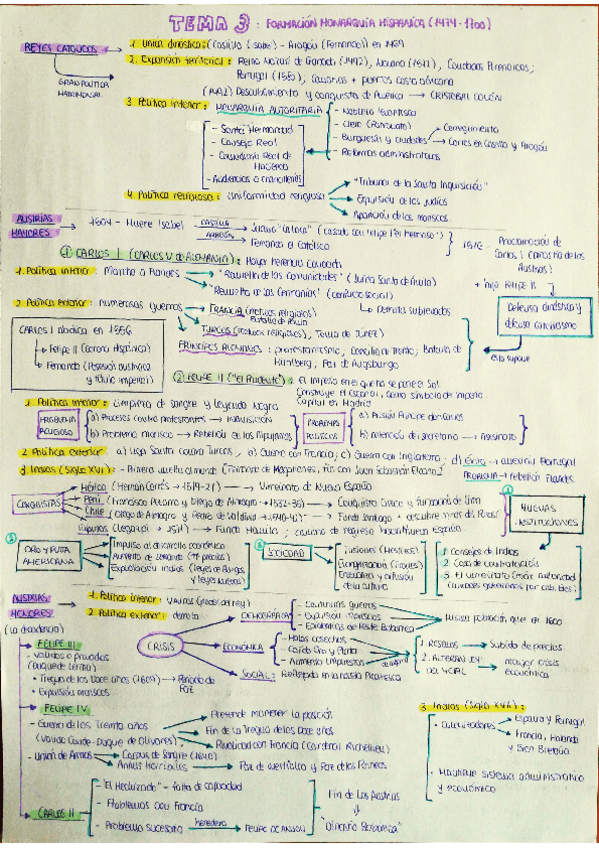 TEMA 3: FORMACIÓN MONARQUÍA HISPÁNICA (1474-1700)
REYES CATÓLICOS
1. Unión dinástica: Castilla (Isabel) - Aragón (Fernando) en 1469
2. Expansión territorial: Reino Nazarí de Granada (1492), Navarra (1512),
Portugal (1580), Canarias + puertos costa africana
(1492) Descubrimiento y conquista de América → CRISTÓBAL COLÓN
GRAN POLÍTICA
MATRIMONIAL
3. Política interior: MONARQUÍA AUTORITARIA
- Nobleza
- Clero (Patronato)
- Burguesía y ciudades
Corregimiento
Cortes en Castilla y Aragón
- Reformas administrativas
- Santa Hermandad
- Consejo Real
- Contaduría Real de
Hacienda
- Audiencias o chancillerías
4. Política religiosa: uniformidad religiosa
"Tribunal de la Santa Inquisición"
Expulsión de los judíos
de los moriscos
AUSTRIAS
MAYORES
1504 - Muere Isabel
CASTILLA
ARAGÓN
Juana "la loca" (casada con Felipe I "el Hermoso")
Fernando el Católico
1516 - Proclamación de
Carlos I (dinastía de los
Austrias)
① CARLOS I (CARLOS V DE ALEMANIA): Mayor herencia
1. Política interior: Marcha a Flandes
"Revuelta de las Comunidades" (Junta Santa de Ávila)
"Revuelta de las Germanías" (conflicto social)
Derrota sublevados
+ hijo Felipe II
Defensa dinástica y
difusa catolicismo
2. Política exterior: numerosas guerras
FRANCIA (motivos religiosos)
Batalla de Pavía
TURCOS (motivos religiosos), Toma de TÚNEZ
PRÍNCIPES ALEMANES: protestantismo, Concilio de Trento, Batalla de
Mühlberg, Paz de Augsburgo
CARLOS I abdica en 1556
Felipe II (corona Hispánica)
Fernando (Posesión austriaca
y título imperial)
② FELIPE II ("El Prudente"): El imperio en el que no se pone el Sol
Construye El Escorial, como símbolo de imperio
Capital en Madrid
1. Política interior: Limpieza de sangre y leyenda negra
PROBLEMA
RELIGIOSO
a) Procesos contra protestantes → INQUISICIÓN
b) Problema morisco → Rebelión de las Alpujarras
PROBLEMAS
POLÍTICOS
a) Prisión Príncipe don Carlos
b) detención del secretario → Asesinato
2. Política exterior: a) Liga Santa contra Turcos; b) Guerra con Francia; c) Guerra con Inglaterra; d) Éxito → anexión Portugal
PROBLEMA → rebelión Flandes
3. Indias (Siglo XVI): - Primera vuelta al mundo (Fernando de Magallanes, fin con Juan Sebastián Elcano)
CONQUISTAS
México (Hernán Cortés → 1519-21) → Virreinato de Nueva España
Perú (Francisco Pizarro y Diego de Almagro → 1532-35) → Conquista Cuzco y fundación de Lima
Chile (Diego de Almagro y Pedro de Valdivia → 1540-42) → Funda Santiago + descubre minas del Potosí
Filipinas (Legazpi → 1571) → Funda Manila; camino de regreso hacia Nueva España
NUEVAS
INSTITUCIONES
1. Consejo de Indias
2. Casa de contratación
3. El virreinato (máx autoridad)
ORO Y PLATA
AMERICANA
Impulso al desarrollo económico
Aumento de demanda (↑ precios)
Explotación indios (leyes de Burgos
y leyes nuevas)
SOCIEDAD
Fusiones (Mestizos)
Evangelización
de la cultura
AUSTRIAS
MENORES
(La decadencia)
1. Política interior: Validos (poder del rey)
2. Política exterior: derrota
CRISIS
DEMOGRÁFICA
- Continuas guerras
- Expulsión moriscos
- Epidemias de Peste Bubónica
Misma población que en 1600
ECONÓMICA
- Malas cosechas
- Caída Oro y Plata
- Aumento Impuestos
1. RESELLOS → Subida de precios
2. ALTERACIÓN
DEL VELLÓN
mayor crisis
económica
SOCIAL: Reflejado en la novela Picaresca
FELIPE III
- Validos o privados
(Duque de Lerma)
• Tregua de los Doce años (1609) → Periodo de
Paz
- Expulsión moriscos
FELIPE IV
- Guerra de los Treinta años
(Valido Conde-Duque de Olivares)
Pretende mantener la posición
Fin de la Tregua de los Doce años
Rivalidad con Francia (Cardenal Richelieu)
- Unión de Armas
Corpus de Sangre (1640)
Paz de Westfalia y Paz de los Pirineos
3. Indias (Siglo XVII):
- Colonizadores
España y Portugal
Francia, Holanda
y Gran Bretaña
- Mantiene sistema administrativo
y económico
CARLOS II
- "El Hechizado" - falta de capacidad
- Problemas con Francia
- Problema sucesorio
heredero
FELIPE DE ANJOU
Fin de Los Austrias
"Dinastía Borbónica"